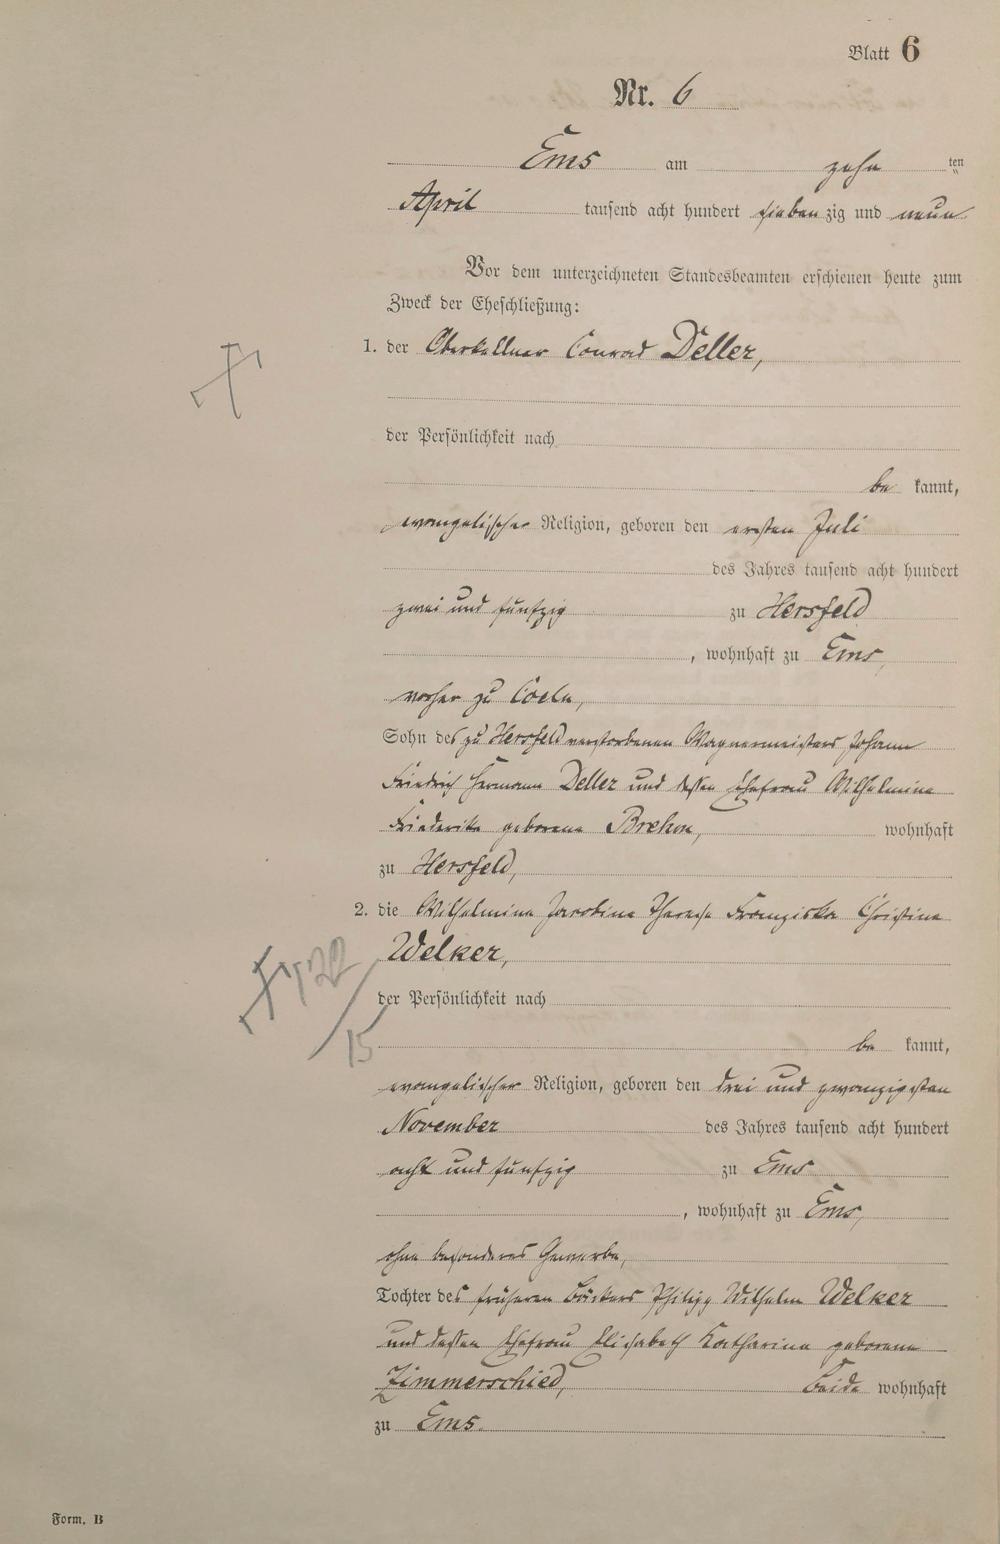 Blatt 6
Nr. 6
Ems am zehn ten
April tausend acht hundert sieben zig und neun
Vor dem unterzeichneten Standesbeamten erschienen heute zum
Zweck der Eheschließung:
1. der Oberkellner Conrad Deller,
der Persönlichkeit nach
be kannt,
evangelischer Religion, geboren den ersten Juli
des Jahres tausend acht hundert
zwei und fünfzig zu Hersfeld
, wohnhaft zu Ems,
vorher zu Coeln,
Sohn des zu Hersfeld verstorbenen Wagnermeisters Johann
Friedrich Hermann Deller und dessen Ehefrau Wilhelmine
Friederike geborene Brehm, wohnhaft
zu Hersfeld,
2. die Wilhelmine Jacobine Therese Franziska Christine
Welker,
22
der Persönlichkeit nach
15
be kannt,
evangelischer Religion, geboren den drei und zwanzigsten
November des Jahres tausend acht hundert
acht und fünfzig zu Ems
, wohnhaft zu Ems,
ohne besonderes Gewerbe,
Tochter des früheren Bäckers Philipp Wilhelm Welker
und dessen Ehefrau Elisabeth Katharine geborene
Zimmerschied, beide wohnhaft
zu Ems.
Form. B